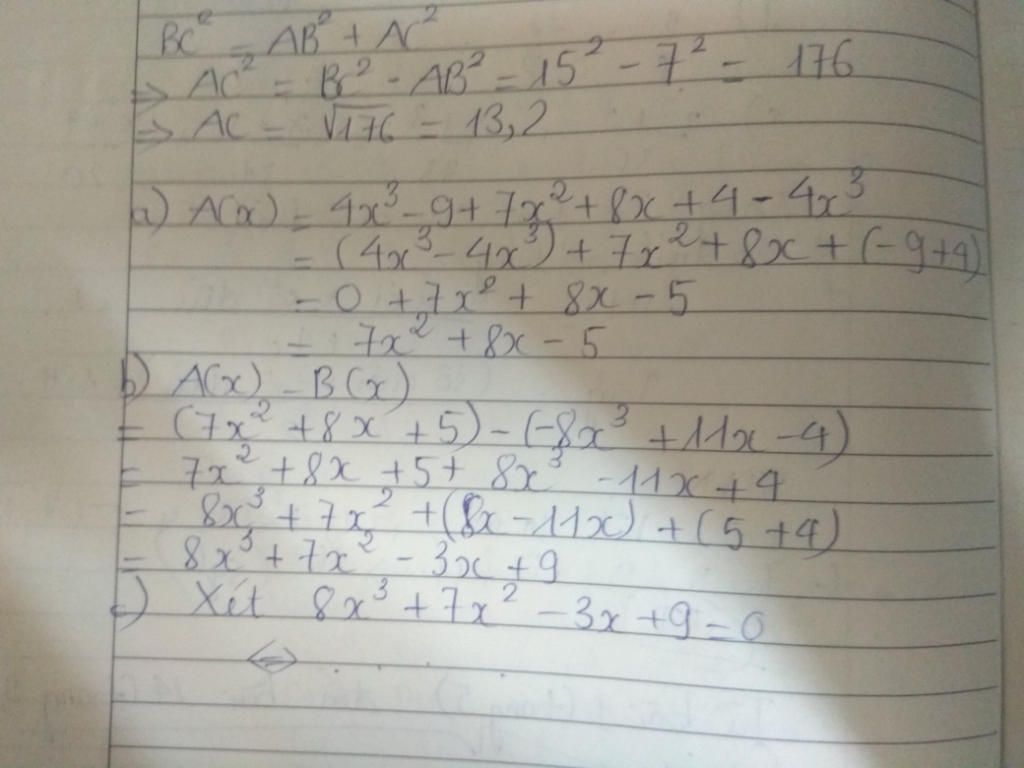 BC² = AB² + AC²
=> AC² = BC² - AB² = 15² - 7² = 176
=> AC = √176 = 13,2
a) A(x) = 4x³ - 9 + 7x² + 8x + 4 - 4x³
= (4x³ - 4x³) + 7x² + 8x + (-9+4)
= 0 + 7x² + 8x - 5
= 7x² + 8x - 5
b) A(x) - B(x)
= (7x² + 8x + 5) - (-8x³ + 11x - 4)
= 7x² + 8x + 5 + 8x³ - 11x + 4
= 8x³ + 7x² + (8x - 11x) + (5 + 4)
= 8x³ + 7x² - 3x + 9
c) Xét 8x³ + 7x² - 3x + 9 = 0
<=>